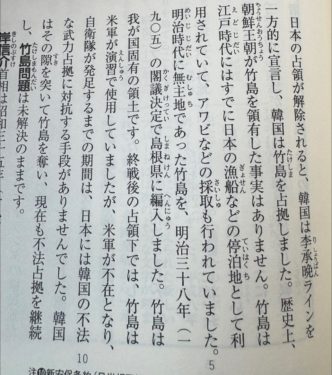 日本の占領が解除されると、韓国は李承晩ラインを
一方的に宣言し、韓国は竹島を占拠しました。歴史上、
朝鮮王朝が竹島を領有した事実はありません。竹島は
江戸時代にはすでに日本の漁船などの停泊地として利
用されていて、アワビなどの採取も行われていました。
5
明治時代に無主地であった竹島を、明治三十八年（一
九〇五）の閣議決定で島根県に編入しました。竹島は
我が国固有の領土です。終戦後の占領下では、竹島は
米軍が演習で使用していましたが、米軍が不在となり、
自衛隊が発足するまでの期間は、日本には韓国の不法
10
な武力占拠に対抗する手段がありませんでした。韓国
はその隙を突いて竹島を奪い、現在も不法占拠を継続
し、竹島問題は未解決のままです。
岸信介首相は昭和三十五年
新安保条約